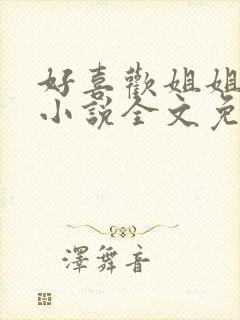 好喜歡姐姐
小說全文免
澤舞音